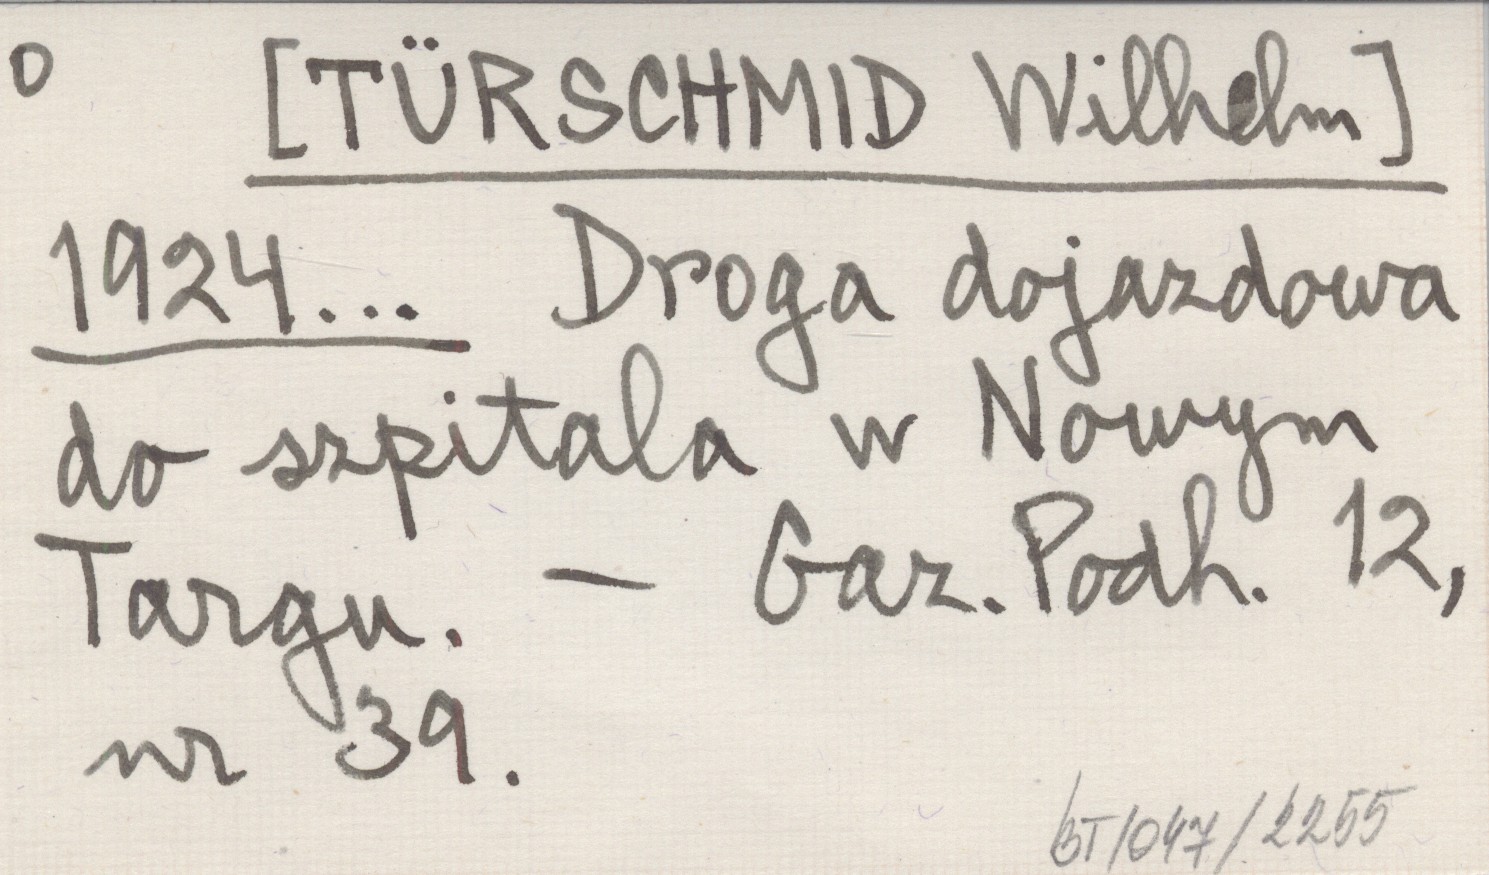 o [TÜRSCHMID Wilhelm]
1924... Droga dojazdowa
do szpitala w Nowym
Targu. — Gaz. Podh. 12,
nr 39.
BT/047/2255